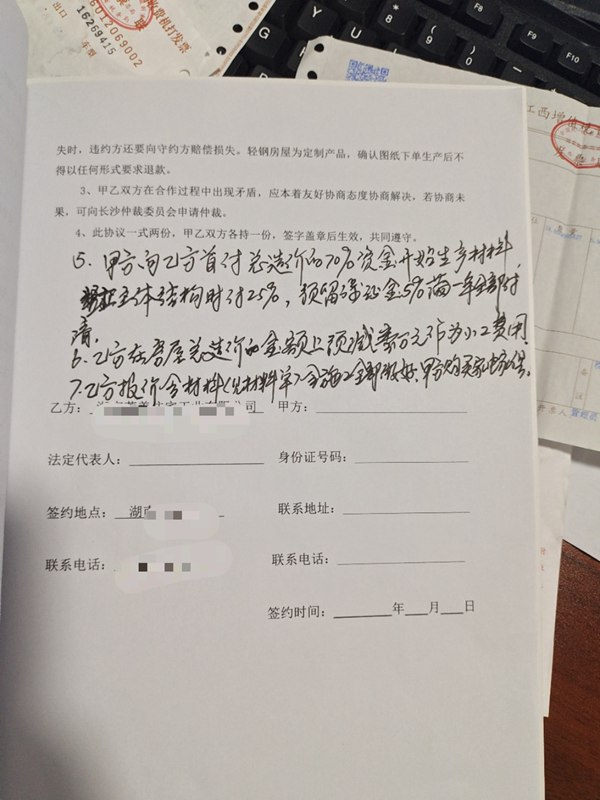 12069002
16269415
出口
车型
江西增值税
失时，违约方还要向守约方赔偿损失。轻钢房屋为定制产品，确认图纸下单生产后不
得以任何形式要求退款。
3、甲乙双方在合作过程中出现矛盾，应本着友好协商态度协商解决，若协商未
果，可向长沙仲裁委员会申请仲裁。
4、此协议一式两份，甲乙双方各持一份，签字盖章后生效，共同遵守。
5、甲方向乙方首付总造价的70%资金开始生产材料，
主体结构时付25%，预留保证金5%满一年全部付
清。
6、乙方在房屋总造价的金额上预减叁万元作为小工费用
7、乙方报价含材料(见材料单)含施工全部做好、甲方购买
乙方：
甲方：
法定代表人：
身份证号码：
签约地点： 湖
联系地址：
联系电话：
联系电话：
签约时间： 年 月 日